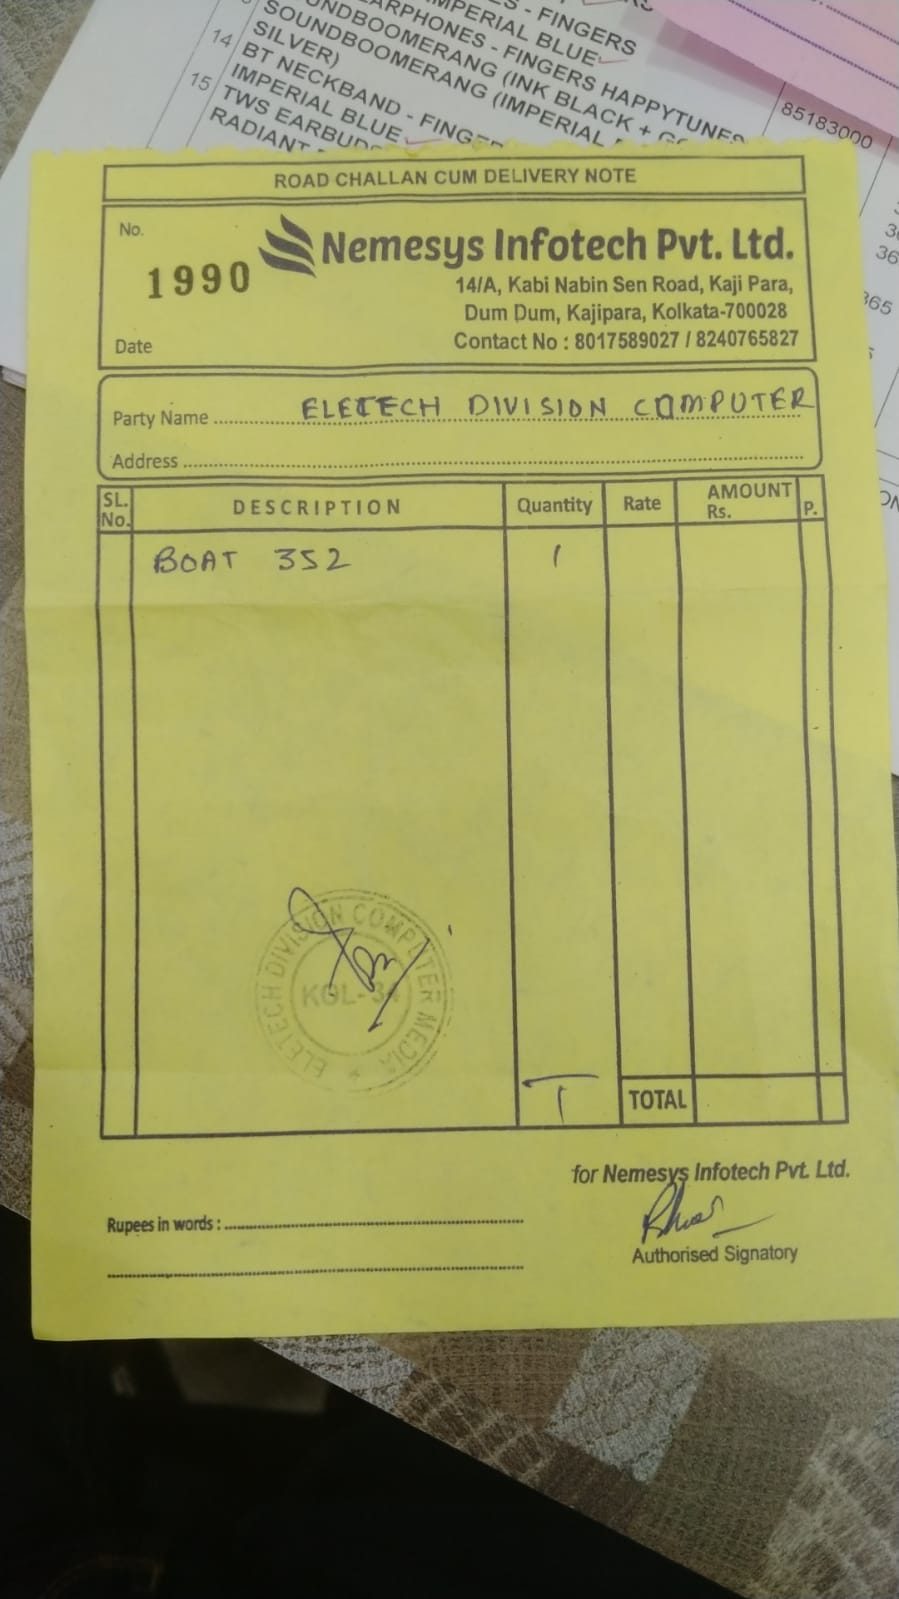 - FINGERS
IMPERIAL BLUE
EARPHONES - FINGERS HAPPYTUNES
SOUNDBOOMERANG (INK BLACK +
SILVER)
SOUNDBOOMERANG (IMPERIAL
14 BT NECKBAND -
IMPERIAL BLUE
15 TWS EARBUDS
RADIANT
85183000
ROAD CHALLAN CUM DELIVERY NOTE
No.
1990
Nemesys Infotech Pvt. Ltd.
14/A, Kabi Nabin Sen Road, Kaji Para,
Dum Dum, Kajipara, Kolkata-700028
Date
Contact No : 8017589027 / 8240765827
Party Name ELETECH DIVISION COMPUTER
Address
SL. No. DESCRIPTION Quantity Rate AMOUNT Rs. P.
BOAT 352 1
ELETECH DIVISION COMPUTER MEDIA
KOL-34
1 TOTAL
for Nemesys Infotech Pvt. Ltd.
Rupees in words :
Authorised Signatory